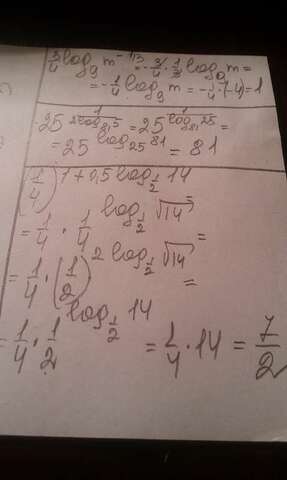 3/4 log₉ m^(-1/3) = -3/4 · 1/3 log₉ m =
= -1/4 log₉ m = -1/4 · (-4) = 1
25^(1/(2log₈₁5)) = 25^(1/(log₈₁25)) =
= 25^(log₂₅81) = 81
(1/4)^(1+0,5log_(1/2)14) =
= 1/4 · 1/4^(log_(1/2)√14) =
= 1/4 · (1/2)^(2log_(1/2)√14) =
= 1/4 · 1/2^(log_(1/2)14) = 1/4 · 14 = 7/2